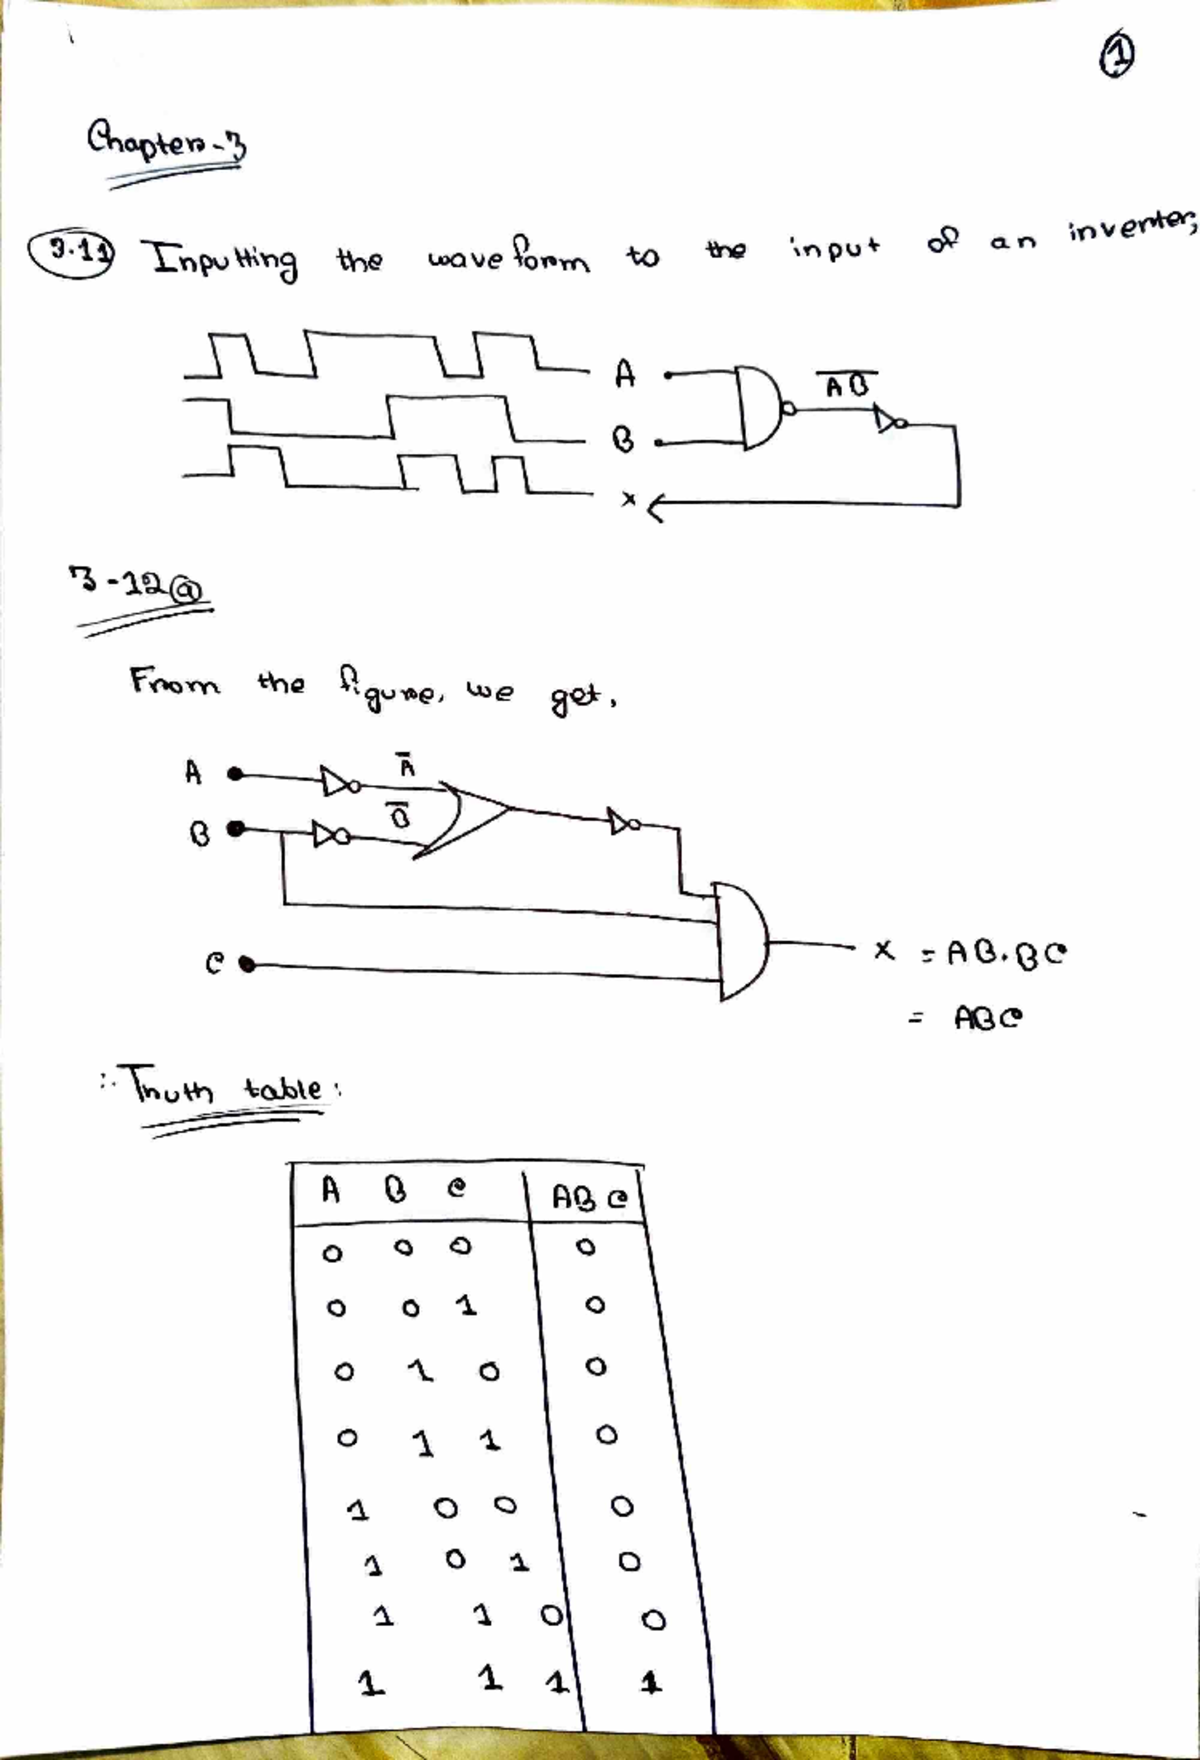 1
Chapter-3
3.11 Inputting the waveform to the input of an inverter,
A
B
x
A̅B̅
3-12 ⓐ
From the figure, we get,
A
A̅
B
B̅
C
x = AB.BC
= ABC
∴ Truth table:
A B C ABC
0 0 0 0
0 0 1 0
0 1 0 0
0 1 1 0
1 0 0 0
1 0 1 0
1 1 0 0
1 1 1 1